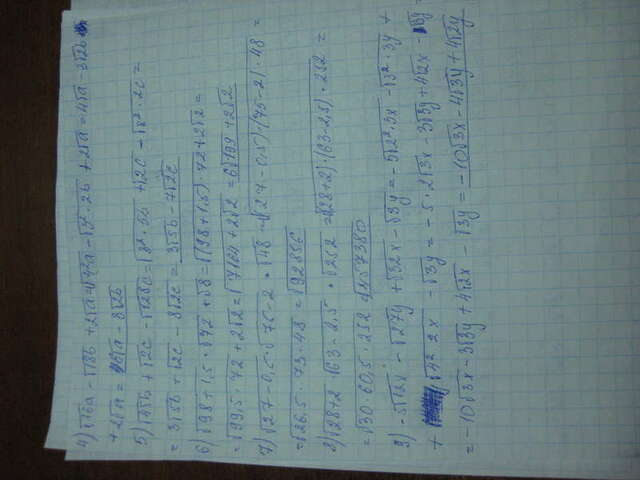 4) √16a - √18b + 2√a = √4²a - √3²·2b + 2√a = 4√a - 3√2b
+ 2√a = 6√a - 8√2b
5) √45b + √2c - √128c = √3²·5b + √2c - √8²·2c =
= 3√5b + √2c - 8√2c = 3√5b - 7√2c
6) √98 + 1,5·√72 + √8 = √(98+1,5)·72 + 2√2 =
= √99,5·72 + 2√2 = √7164 + 2√2 = 6√199 + 2√2
7) √27 - 0,5·√75 - 2·√48 = √(27-0,5)·(75-2)·48 =
= √26,5·73·48 = √92856
8) √28+2·√63 - 2,5·√252 = √(28+2)·(63-2,5)·252 =
= √30·60,5·252 = √457380
9) -5√12x - √27y + √32x - √3y = -5√2²·3x - √3²·3y +
+ √4²·2x - √3y = -5·2√3x - 3√3y + 4√2x - √3y =
= -10√3x - 3√3y + 4√2x - √3y = -10√3x - 4√3y + 4√2y